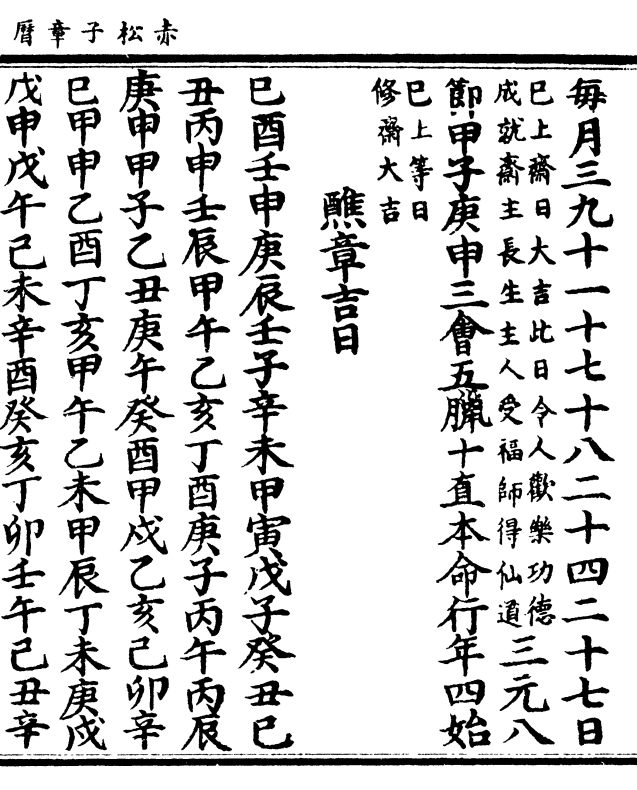 赤松子章曆
毎月三九十一十七十八二十四二十七日
巳上齋日大吉此日令人歡樂功德
成就齋主長生主人受福師得仙道三元八
節甲子庚申三會五臘十直本命行年四始
巳上等日
修齋大吉
醮章吉日
巳酉壬申庚辰壬子辛未甲寅戊子癸丑巳
丑丙申壬辰甲午乙亥丁酉庚子丙午丙辰
庚申甲子乙丑庚午癸酉甲戌乙亥己卯辛
巳甲申乙酉丁亥甲午乙未甲辰丁未庚戌
戊申戊午己未辛酉癸亥丁卯壬午己丑辛